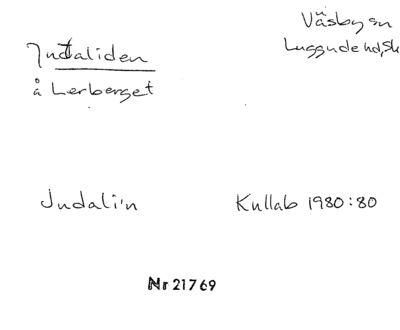 Väsby sn
Luggude hd, Sk
Judaliden
å Lerberget
Judali'n
Kullab 1980:80
Nr 21769